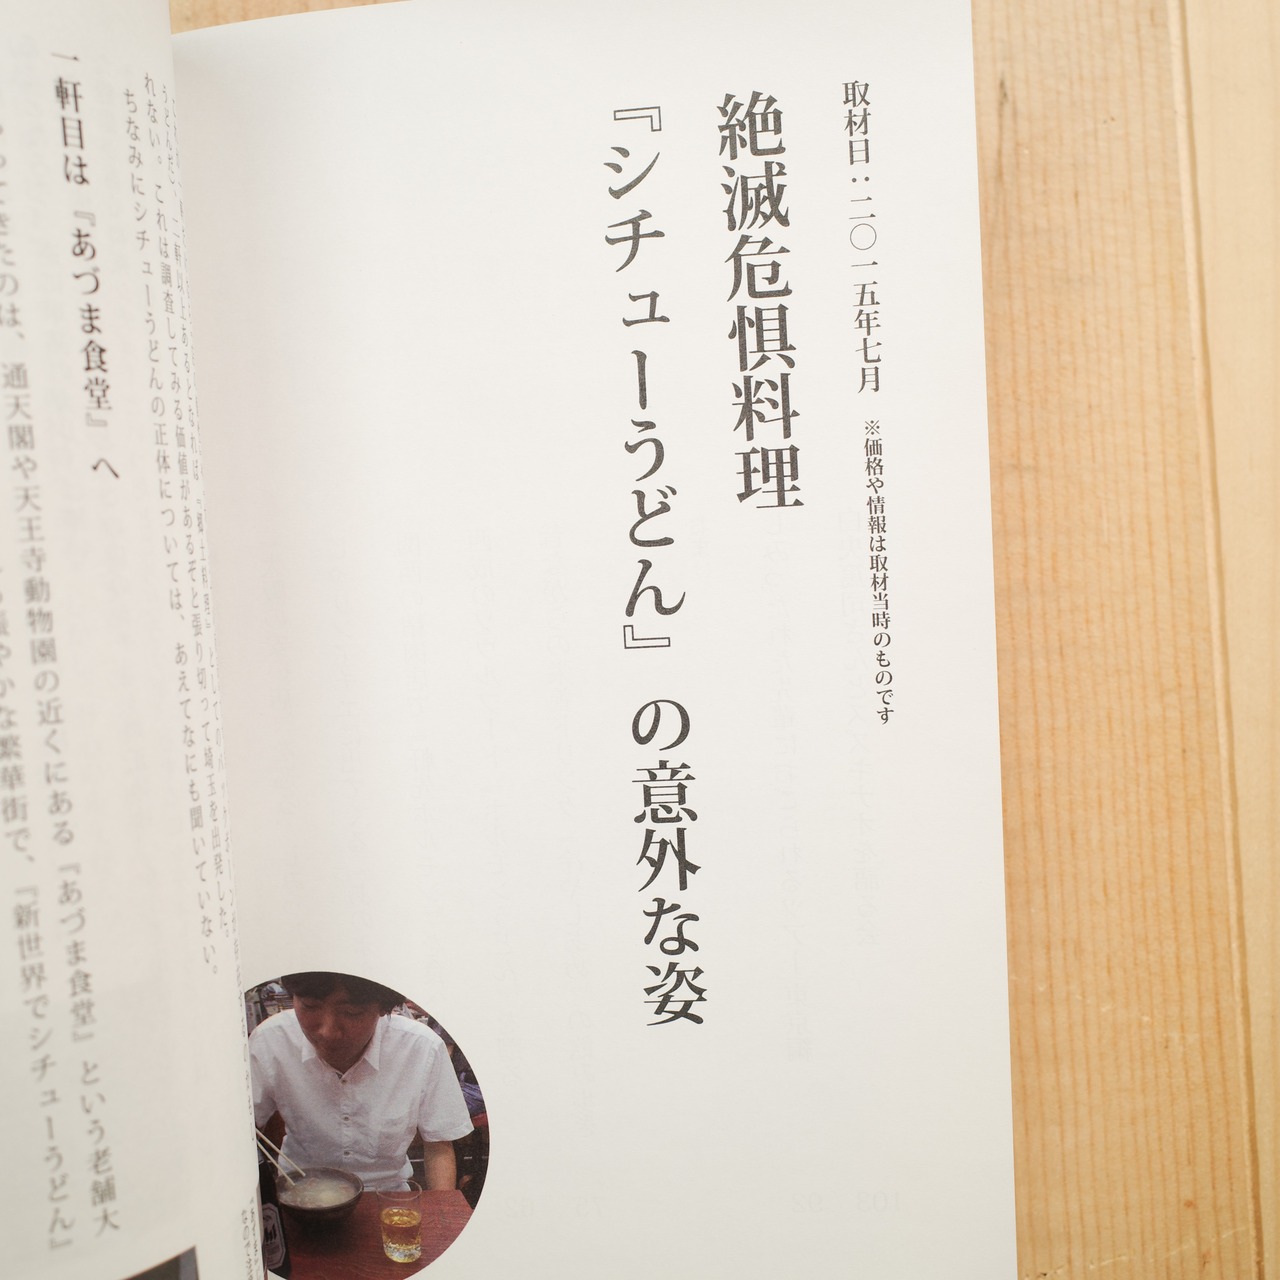 取材日：二〇一五年七月　※価格や情報は取材当時のものです
絶滅危惧料理
『シチューうどん』の意外な姿
れない。これは調査してみる価値があるぞと張り切って埼玉を出発した。
ちなみにシチューうどんの正体については、あえてなにも聞いていない。
一軒目は『あづま食堂』へ
通天閣や天王寺動物園の近くにある『あづま食堂』という老舗大
やかな繁華街で、『新世界でシチューうどん』